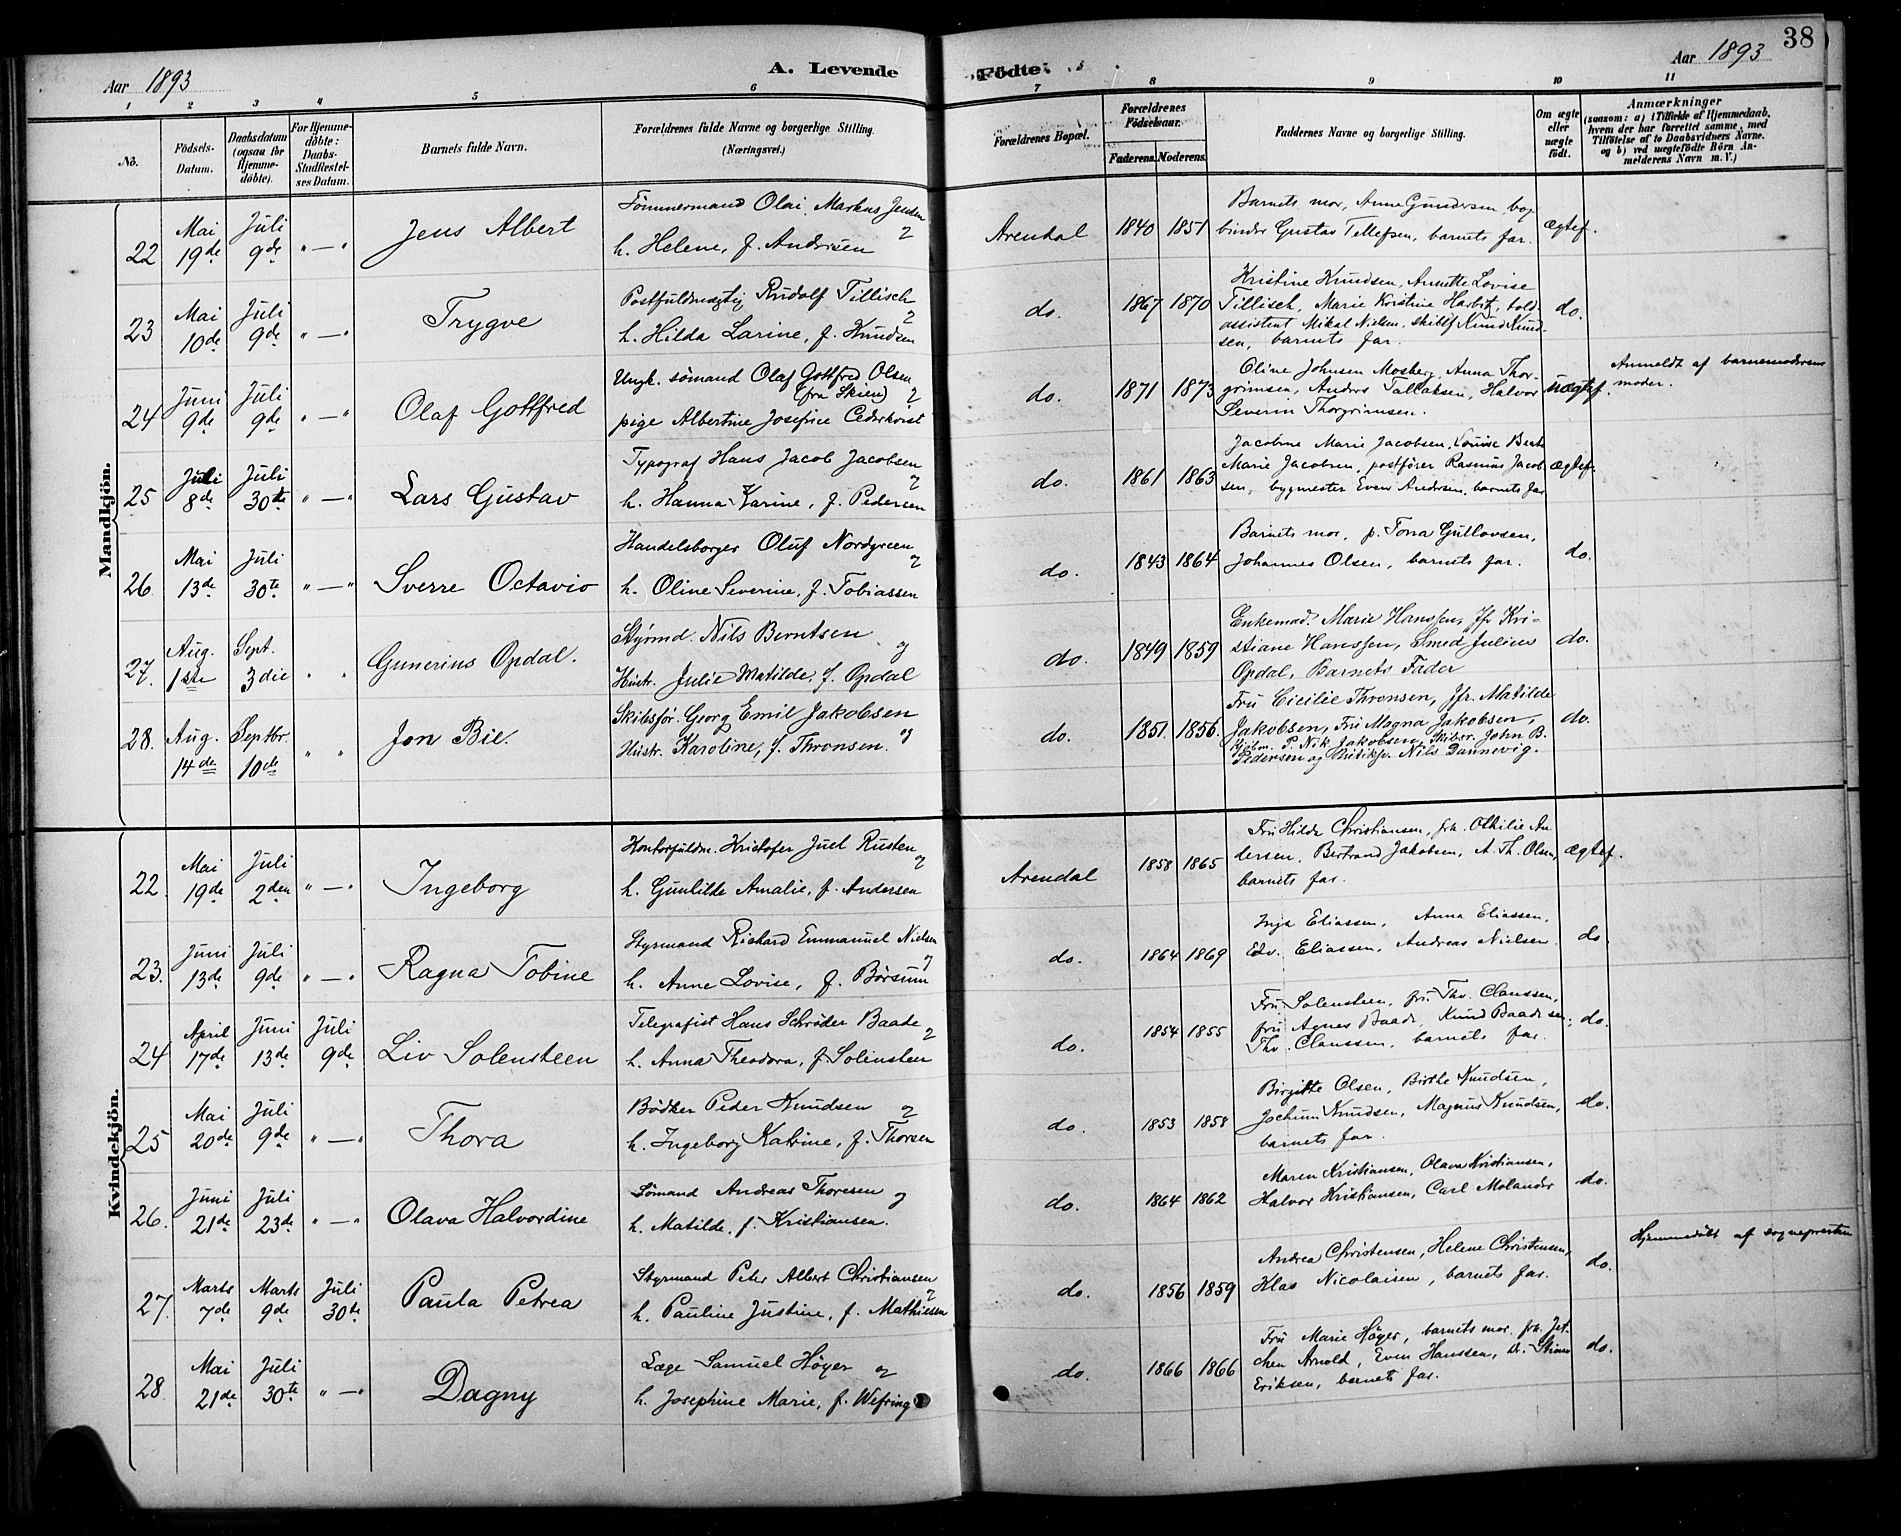 38
Aar 1893
A. Levende
Födte.
Aar 1893
1 2 3 4 5 6 7 8 9 10 11
No.
Födsels-
Datum.
Daabsdatum
(ogsaa for
Hjemme-
døbte).
For Hjemme-
döbte:
Daabs-
Stadfæstel-
ses Datum.
Barnets fulde Navn.
Forældrenes fulde Navne og borgerlige Stilling.
(Næringsvei.)
Forældrenes Bopæl.
Forældrenes
Födselsaar.
Faderens. Moderens.
Faddernes Navne og borgerlige Stilling.
Om ægte
eller
uægte
født.
Anmærkninger
(saasom: a) i Tilfælde af Hjemmedaab,
hvem der har forrettet samme, med
Tilföielse af to Daabsvidners Navne.
og b) ved uægtefödte Börn An-
melderens Navn m. V.)
Mandkjön.
22
Mai
19de
Juli
9de
" — "
Jens Albert
Tömmermand Olai Markus Jensen
h. Helene, f. Andersen
Arendal
1840 1851
Barnets mor, Anne Gundersen, bog
binder Gustav Tellefsen, barnets far.
ægtef.
23
Mai
10de
Juli
9de
" — "
Trygve
Postfuldmægtig Rudolf Tillisch
h. Hilda Larine, f. Knudsen
do.
1867 1870
Kristine Knudsen, Annette Lovise
Tillisch, Marie Kristine Harbitz, told
assistent Mikal Nielsen, skibsf. Knud Knud-
sen, barnets far.
do.
24
Juni
9de
Juli
9de
" — "
Olaf Gottfred
Ungk. sömand Olaf Gottfred Olsen
(fra Skien)
pige Albertine Josefine Cederkvist
do.
1871 1873
Oline Johnsen Mosberg, Anna Thor-
grimsen, Anders Tallaksen, Halvor
Severin Thorgrimsen.
uægtef.
Anmeldt af barnemoderens
moder.
25
Juli
8de
Juli
30te
" — "
Lars Gustav
Typograf Hans Jacob Jacobsen
h. Hanna Karine, f. Pedersen
do.
1861 1863
Jacobine Marie Jacobsen, Louise
Marie Jacobsen, postfører Rasmus Jacob
sen, bygmester Even Andersen, barnets far
ægtef.
26
Mai
13de
Juli
30te
" — "
Sverre Octavio
Handelsborger Oluf Nordgreen
h. Oline Severine, f. Tobiassen
do.
1843 1864
Barnets mor, p. Tona Gullovsen,
Johannes Olsen, barnets far.
do.
27.
Aug.
1ste
Sept.
3die
" "
Gunerius Opdal.
Styrmd. Nils Berntsen
og
Hustr. Julie Matilde, f. Opdal
do.
1849 1859
Enkemad. Marie Hanssen, Jfr Kri-
stiane Hanssen, Smed Julius
Opdal, Barnets Fader
do.
28.
Aug.
14de
Septbr.
10de
" "
Jon Bie.
Skibsfør. Georg Emil Jakobsen
og
Hustr. Karoline, f. Thronsen.
do.
1851. 1856.
Fru Cicilie Thronsen, Jfr. Matilde
Jakobsen, Fru Magna Jakobsen,
P. Nik. Jakobsen, Skibsr. John B.
Pedersen og Nils Dannevig.
do.
Kvindekjön.
22
Mai
19de
Juli
2den
" — "
Ingeborg
Kontorfuldm. Kristofer Juel Rusten
h. Gunhilde Amalie, f. Andersen
Arendal
1858 1865
Fru Hilda Christiansen, frk. Othilie An
dersen, Bertrand Jakobsen, A. Th. Olsen,
barnets far.
ægtef.
23.
Juni
13de
Juli
9de
" — "
Ragna Tobine
Styrmand Richard Emmanuel Nielsen
og
h. Anne Lovise, f. Børsum
do.
1864 1869
Inga Eliassen, Anna Eliassen,
Edv. Eliassen, Andreas Nielsen
do
24
April
17de
Juni
13de
Juli
9de
Liv Solensteen
Telegrafist Hans Schrøder Baade
h. Anna Theodora, f. Solensteen
do.
1854 1855
Fru Solensteen, fru Thv. Claussen,
fru Agnes Baade, Knud Baade sen.,
Thv. Claussen, barnets far.
do.
25
Mai
20de
Juli
9de
" — "
Thora
Bödker Peder Knudsen
h. Ingeborg Katrine, f. Thorsen
do.
1853 1858
Birgitte Olsen, Birthe Knudsen,
Jochum Knudsen, Magnus Knudsen,
barnets far.
do.
26.
Juni
21de
Juli
23de
" — "
Olava Halvordine
Sömand Andreas Thoresen og
h. Matilde, f. Kristiansen.
do.
1864 1862
Maren Kristiansen, Olava Kristiansen,
Halvor Kristiansen, Carl Molander
do.
27.
Marts
7de
Marts
9de
Juli
30te
Paula Petrea
Styrmand Peter Albert Christiansen
h. Pauline Justine, f. Mathiesen
do.
1856 1859
Andrea Christensen, Helene Christensen,
Klas Nicolaisen, barnets far.
do.
Hjemmedøbt af sognepresten
28.
Mai
21de
Juli
30te
" — "
Dagny
Læge Samuel Höyer og
h. Josephine Marie, f. Wefring
do.
1866 1866
Fru Marie Höyer, barnets mor, frk. Jet-
chen Arnold, Even Hanssen,
Eriksen, barnets far.
do.